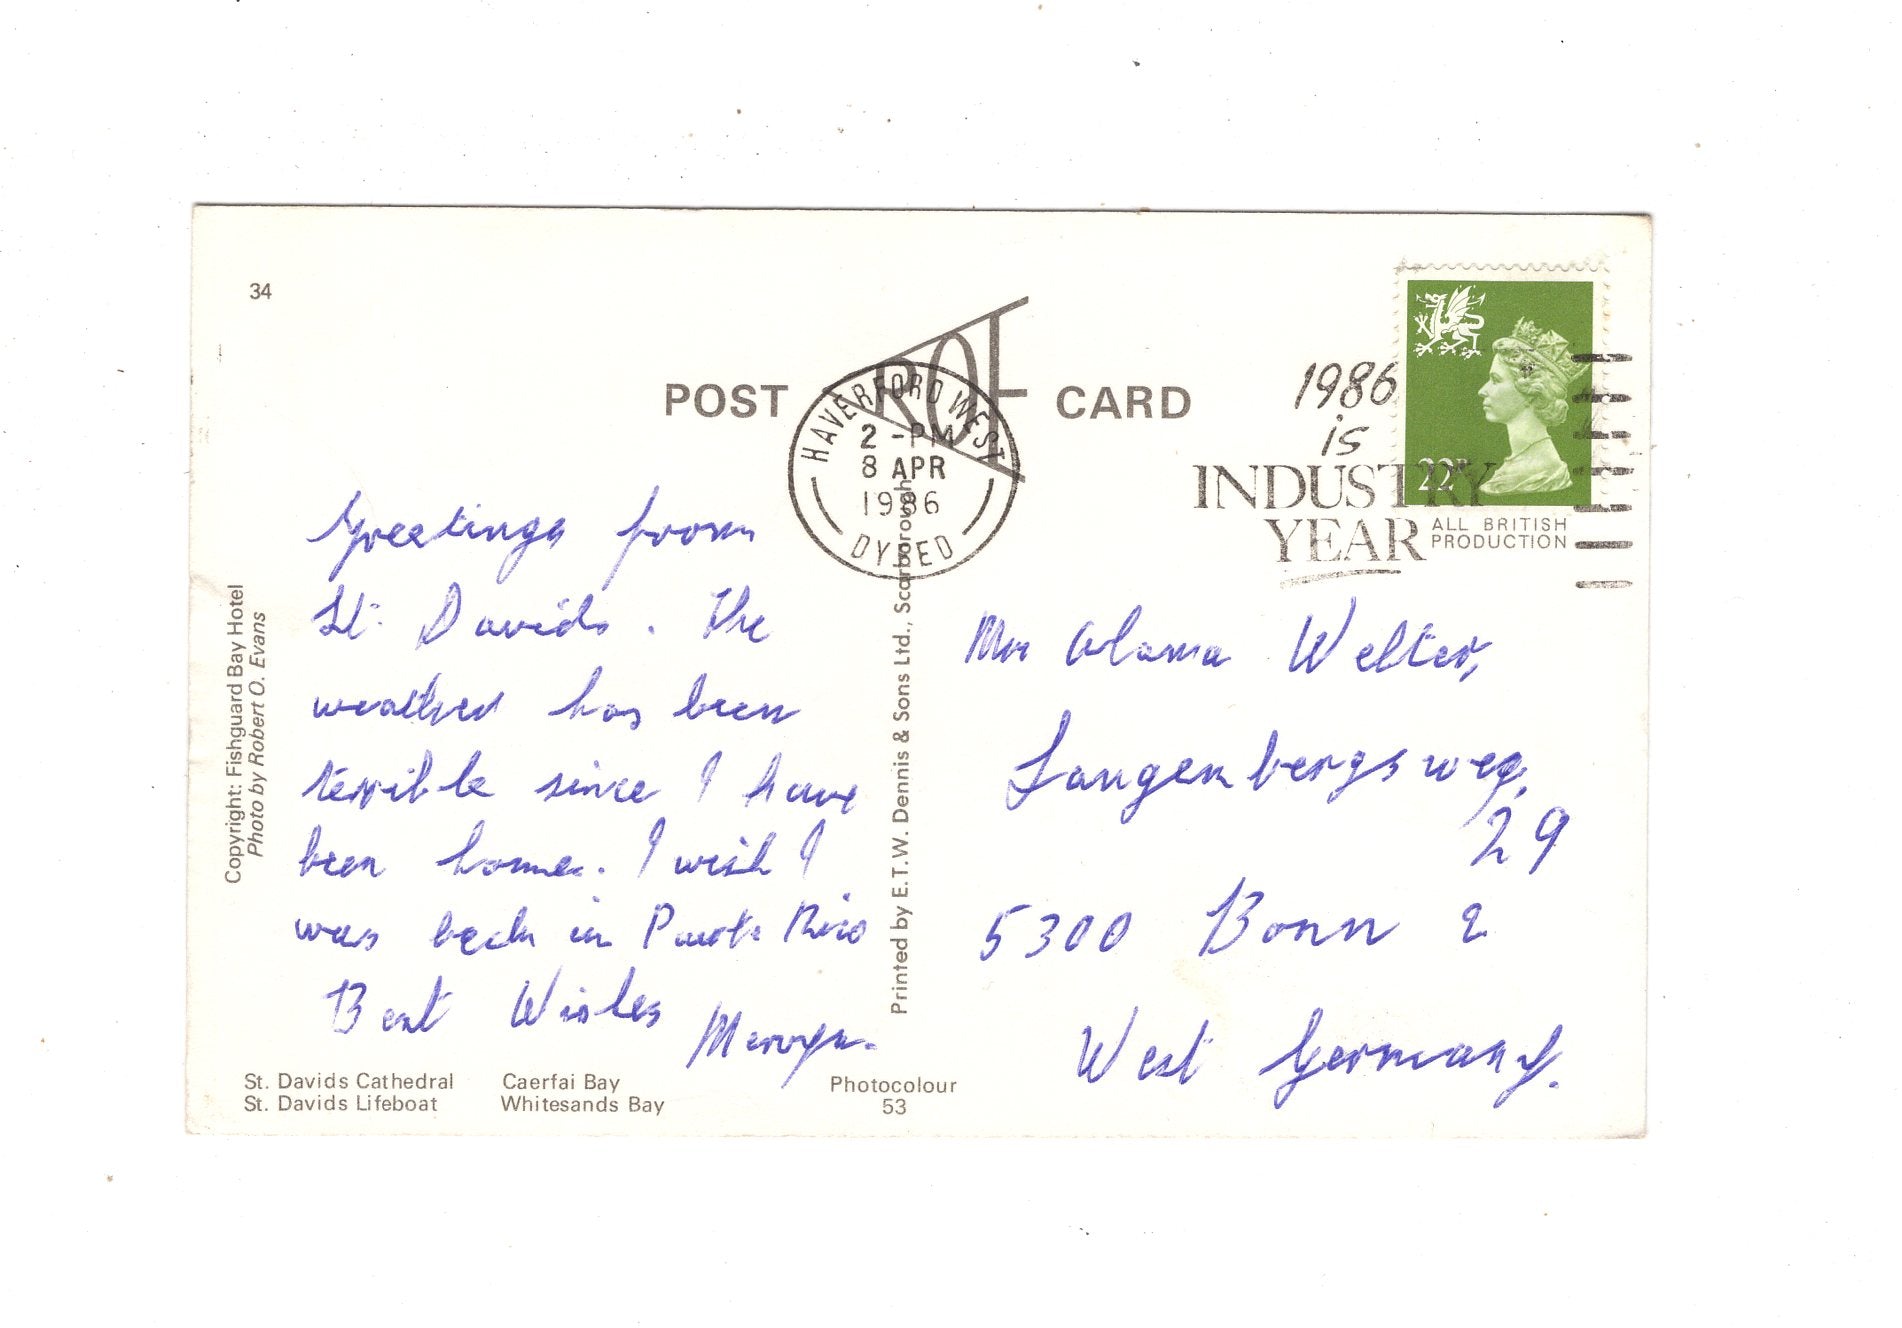 34
POST CARD
HAVERFORD WEST
2 -PM
8 APR
1986
DYFED
1986
is
INDUSTRY
YEAR
ALL BRITISH
PRODUCTION
22P
Greetings from
St. Davids. The
weather has been
terrible since I have
been home. I wish I
was back in Puerto Rico
Best Wishes
Mervyn.
Welter,
Langenbergsweg,
29
5300 Bonn 2
West Germany.
Copyright: Fishguard Bay Hotel
Photo by Robert O. Evans
Printed by E.T.W. Dennis & Sons Ltd., Scarborough
St. Davids Cathedral Caerfai Bay
St. Davids Lifeboat Whitesands Bay
Photocolour
53